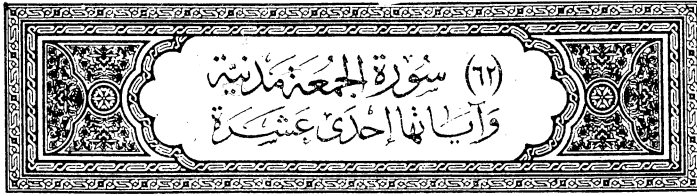 (٦٢) سُورَةُ الجُمُعَةِ مَدَنِيَّة
وَآيَاتُهَا إِحْدَى عَشَرَةَ